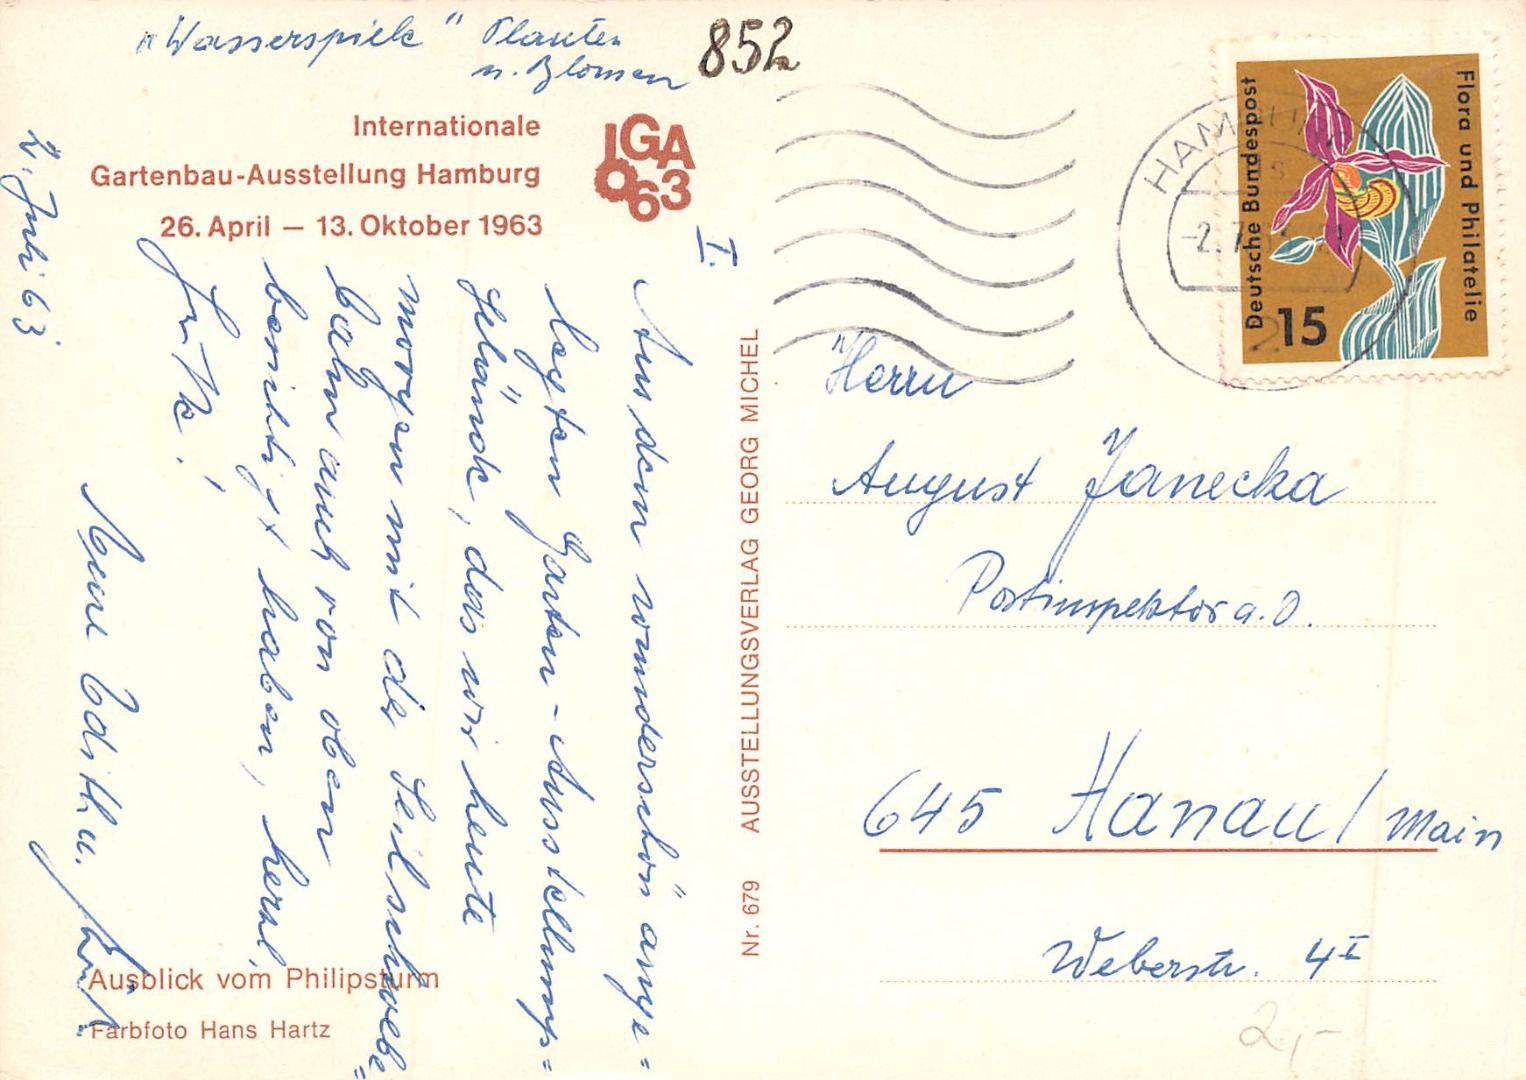 "Wasserspiele" Planten
u. Blomen
852
Internationale
Gartenbau-Ausstellung Hamburg
26. April – 13. Oktober 1963
IGA
63
2. Juli 63
I.
Aus dem wunderschön ange=
legten Garten-Ausstellungs=
Gelände, das wir heute
morgen mit der Seilschwebe=
bahn auch von oben
besichtigt haben, herzl.
Grüße!
Eure Edith u.
Ausblick vom Philipsturm
Farbfoto Hans Hartz
Nr. 679 AUSSTELLUNGSVERLAG GEORG MICHEL
HAMBURG
-2.7.
2
Deutsche Bundespost
Flora und Philatelie
15
Herrn
August Janecka
Postinspektor a.D.
645 Hanau/Main
Weberstr. 4 I
2,-